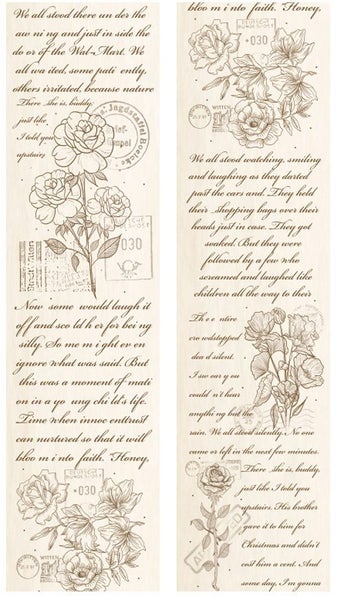 We all stood there un der the
aw ni ng and just in side the
do or of the Wal-Mart. We
all wa ited, some pati ently,
others irritated, because nature
There she is, buddy,
just like
I told you
upstairs
Jagdstaffel Boelcke
030
Now some would laugh it
off and sco ld h er for bei ng
silly. So me m i ght ev en
ignore what was said. But
this was a moment of mati
on in a yo ung chi ld's life.
Time when innoc entrust
can nurtured so that it will
bloo m i nto faith. Honey,
030
WITTEN
bloo m i nto faith. Honey,
030
WITTEN
We all stood watching, smiling
and laughing as they darted
past the cars and. They held
their shopping bags over their
heads just in case. They get
soaked. But they were
followed by a few who
screamed and laughed like
children all the way to their
Th e e ntire
cro wdstopped
dea d silent.
I swe ar y ou
could n't hear
anythi ng but the
rain. We all stood silently. No one
came or left in the next few minutes.
There she is, buddy,
just like I told you
upstairs. His brother
gave it to him for
Christmas and didn't
cost him a cent. And
some day, I'm gonna